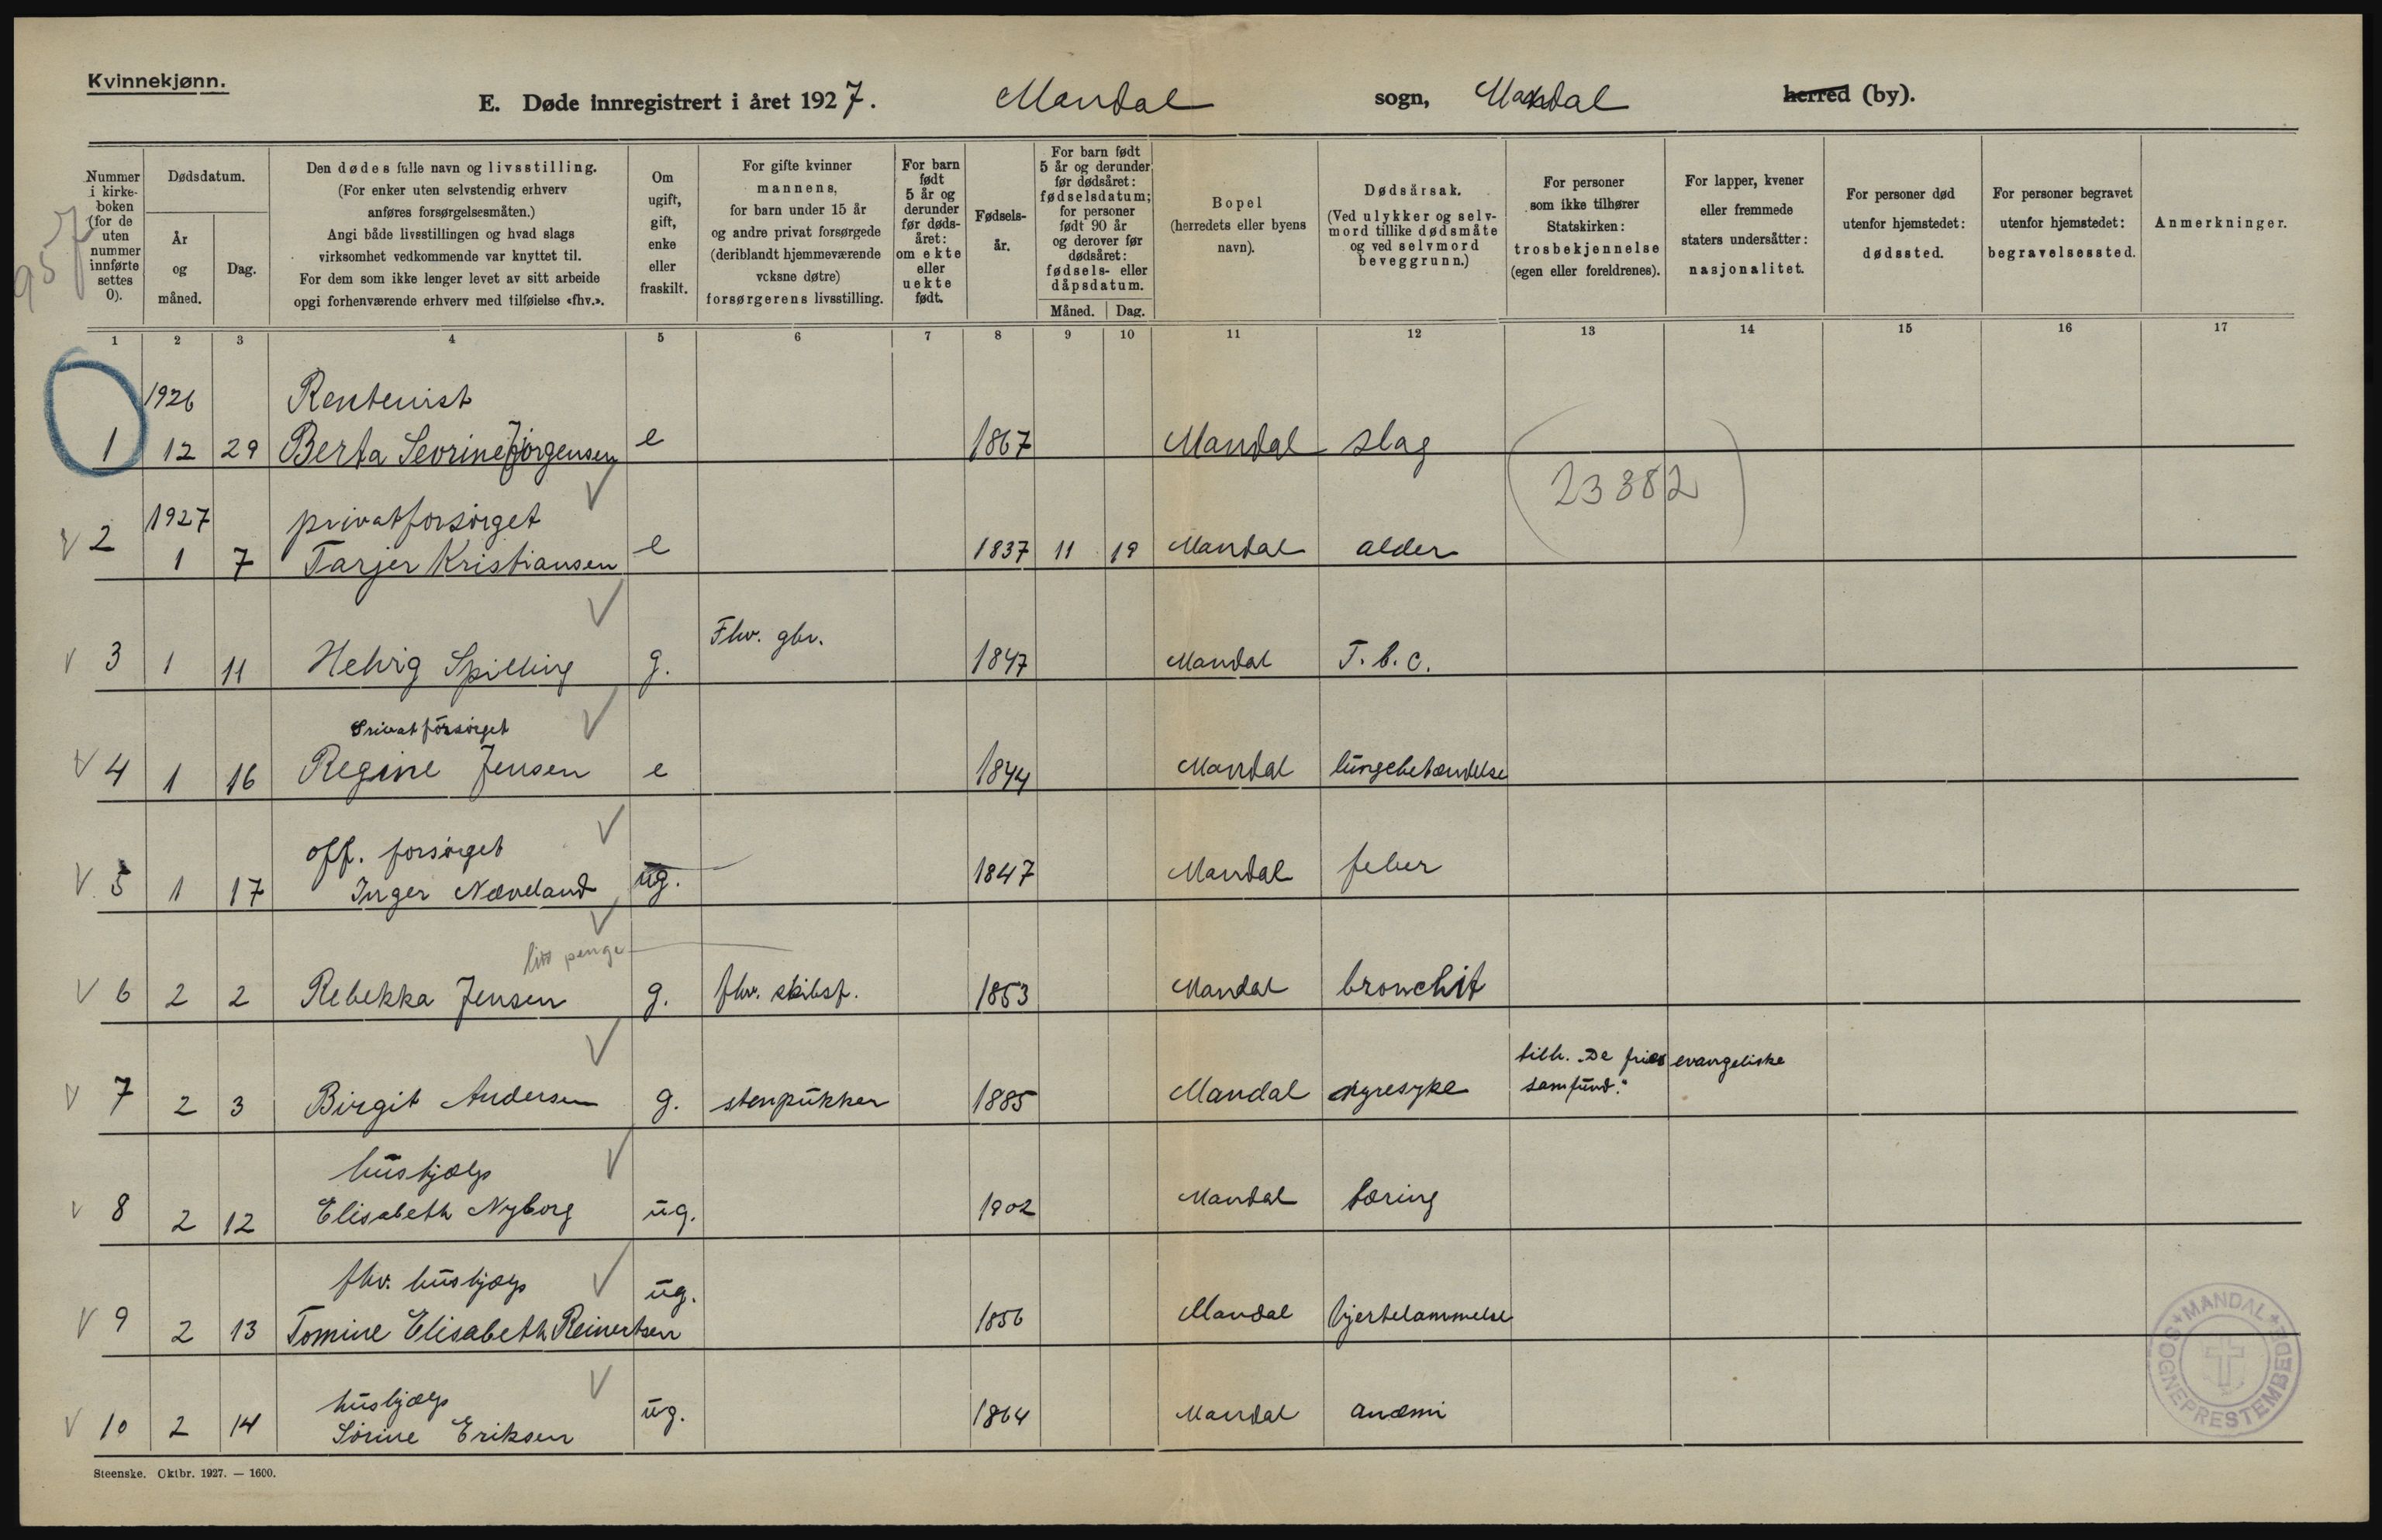 Kvinnekjønn.
E. Døde innregistrert i året 1927. Mandal sogn, Mandal herred (by).
957
Nummer i kirke-boken (for de uten nummer innførte settes 0).
Dødsdatum.
År og måned.
Dag.
Den dødes fulle navn og livsstilling.
(For enker uten selvstendig erhverv
anføres forsørgelsesmåten.)
Angi både livsstillingen og hvad slags
virksomhet vedkommende var knyttet til.
For dem som ikke lenger levet av sitt arbeide
opgi forhenværende erhverv med tilføielse «fhv.».
Om ugift, gift, enke eller fraskilt.
For gifte kvinner
mannens,
for barn under 15 år
og andre privat forsørgede
(deriblandt hjemmeværende
voksne døtre)
forsørgerens livsstilling.
For barn født 5 år og derunder før døds-året: om ekte eller uekte født.
Fødsels-år.
For barn født 5 år og derunder før dødsåret: fødselsdatum; for personer født 90 år og derover før dødsåret: fødsels- eller dåpsdatum.
Måned. Dag.
Bopel
(herredets eller byens
navn).
Dødsårsak.
(Ved ulykker og selv-
mord tillike dødsmåte
og ved selvmord
beveggrunn.)
For personer
som ikke tilhører
Statskirken:
trosbekjennelse
(egen eller foreldrenes).
For lapper, kvener
eller fremmede
staters undersåtter:
nasjonalitet.
For personer død
utenfor hjemstedet:
dødssted.
For personer begravet
utenfor hjemstedet:
begravelsessted.
Anmerkninger.
1 2 3 4 5 6 7 8 9 10 11 12 13 14 15 16 17
1926 Rentenist
1 12 29 Berta Sevrine Jørgensen e 1867 Mandal slag
(23382)
1927 privatforsørget
2 1 7 Tarjer Kristiansen e 1837 11 19 Mandal alder
Fhv. gbr.
3 1 11 Helvig Spilling g. 1847 Mandal T.b.c.
Privat forsørget
4 1 16 Regine Jensen e 1844 Mandal lungebetændelse
off. forsørget
5 1 17 Inger Næveland ug. 1847 Mandal feber
penge
6 2 2 Rebekka Jensen g. fhv. skibsf. 1853 Mandal bronchit
tilh. "De fries evangeliske
samfund."
7 2 3 Birgit Andersen g. stenpukker 1885 Mandal nyresyke
hushjælp
8 2 12 Elisabeth Nyborg ug. 1902 Mandal tæring
fhv. hushjælp ug.
9 2 13 Tomine Elisabeth Reinertsen 1856 Mandal hjertelammelse
hushjælp
10 2 14 Sørine Eriksen ug. 1864 Mandal anæmi
MANDAL SOGNEPRESTEMBEDE
Steenske. Oktbr. 1927. — 1600.